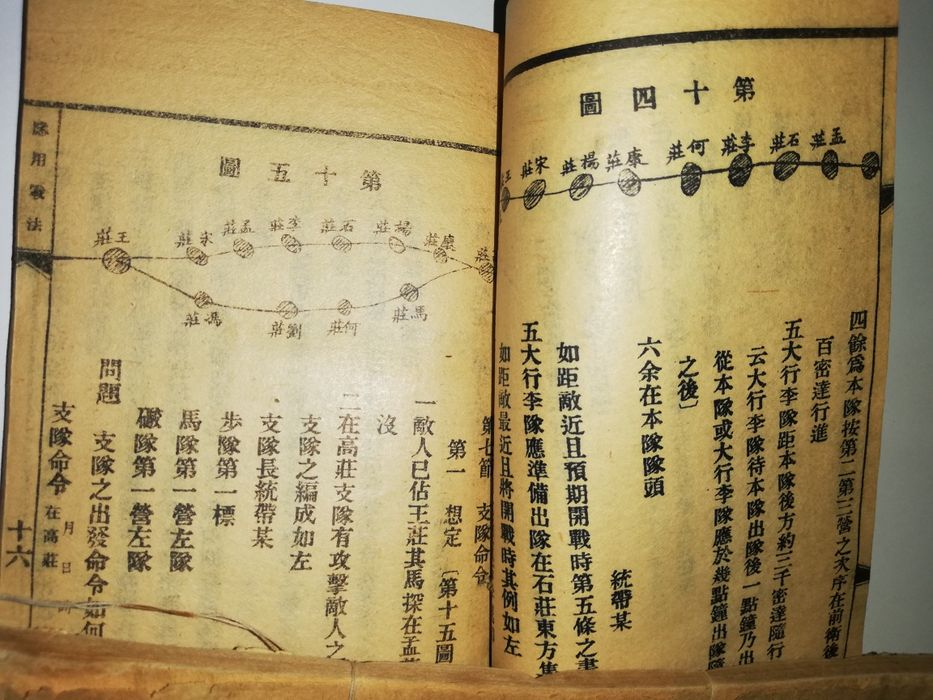 第十四圖
孟莊
石莊
李莊
何莊
康莊
楊莊
宋莊
王
四餘爲本隊按第二第三營之次序在前衛後
百密達行進
五大行李隊距本隊後方約三千密達隨行
云大行李隊待本隊出隊後一點鐘乃出
從本隊或大行李隊應於幾點鐘出隊
之後〕
六余在本隊隊頭
統帶某
如距敵近且預期開戰時第五條之
五大行李隊應準備出隊在石莊東方集
如距敵最近且將開戰時其例如左
第七節 支隊命令
第一 想定 〔第十五圖
一敵人已佔王莊其馬探在孟
沒
二在高莊支隊有攻擊敵人之
支隊之編成如左
支隊長統帶某
步隊第一標
馬隊第一營左隊
礮隊第一營左隊
問題
支隊之出發命令如何
支隊命令 月 日 在高莊
第十五圖
莊
康莊
楊莊
石莊
李莊
孟莊
宋莊
王莊
馬莊
何莊
劉莊
馮莊
應用戰法
十六